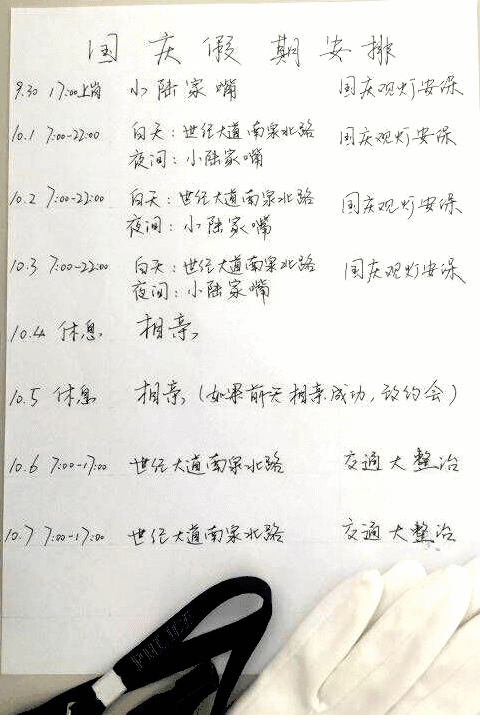 国庆假期安排
9.30 17:00上岗 小陆家嘴 国庆观灯安保
10.1 7:00-22:00 白天：世纪大道南泉北路 国庆观灯安保
夜间：小陆家嘴
10.2 7:00-22:00 白天：世纪大道南泉北路 国庆观灯安保
夜间：小陆家嘴
10.3 7:00-22:00 白天：世纪大道南泉北路 国庆观灯安保
夜间：小陆家嘴
10.4 休息 相亲
10.5 休息 相亲（如果前天相亲成功，改约会）
10.6 7:00-17:00 世纪大道南泉北路 交通大整治
10.7 7:00-17:00 世纪大道南泉北路 交通大整治
POLICE